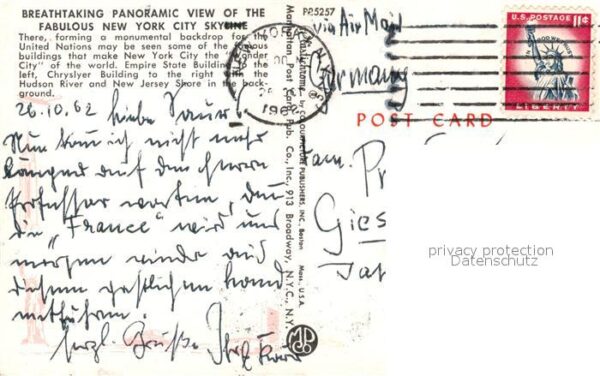 BREATHTAKING PANORAMIC VIEW OF THE
FABULOUS NEW YORK CITY SKYLINE
There, forming a monumental backdrop for the
United Nations may be seen some of the famous
buildings that make New York City the "Wonder
City" of the world. Empire State Building to the
left, Chryslyer Building to the right with the
Hudson River and New Jersey Shore in the back-
ground.
26.10.62 Liebe
Nun kann ich nicht mehr
länger auf den Herrn
Professor warten, denn
die "France" wird uns
morgen wieder aus
diesem gastlichen Land
entführen.
herzl. Grüße
PP.5257
Manhattan Post Card Pub. Co., Inc., 913 Broadway, N.Y.C., N.Y.
by COLOURPICTURE PUBLISHERS, INC., Boston Mass., U.S.A.
MPC
via Air Mail
Germany
POST CARD
U.S. POSTAGE 11¢
IN GOD WE TRUST
LIBERTY
Fam.
Pr
Gies
privacy protection
Datenschutz